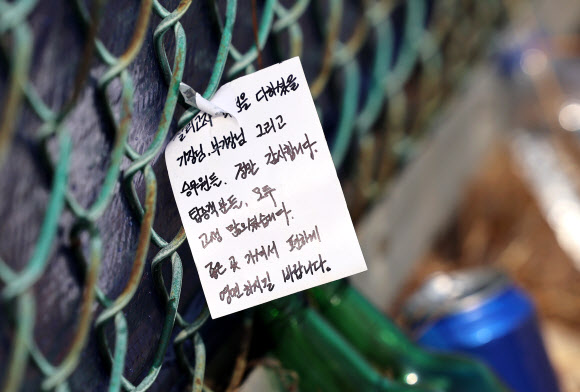 살리고자 힘을 다하셨을
기장님, 부기장님 그리고
승무원들, 정말 감사합니다.
탑승객분들, 모두
고생 많으셨습니다.
좋은 곳 가셔서 편하게
영면하시길 바랍니다.